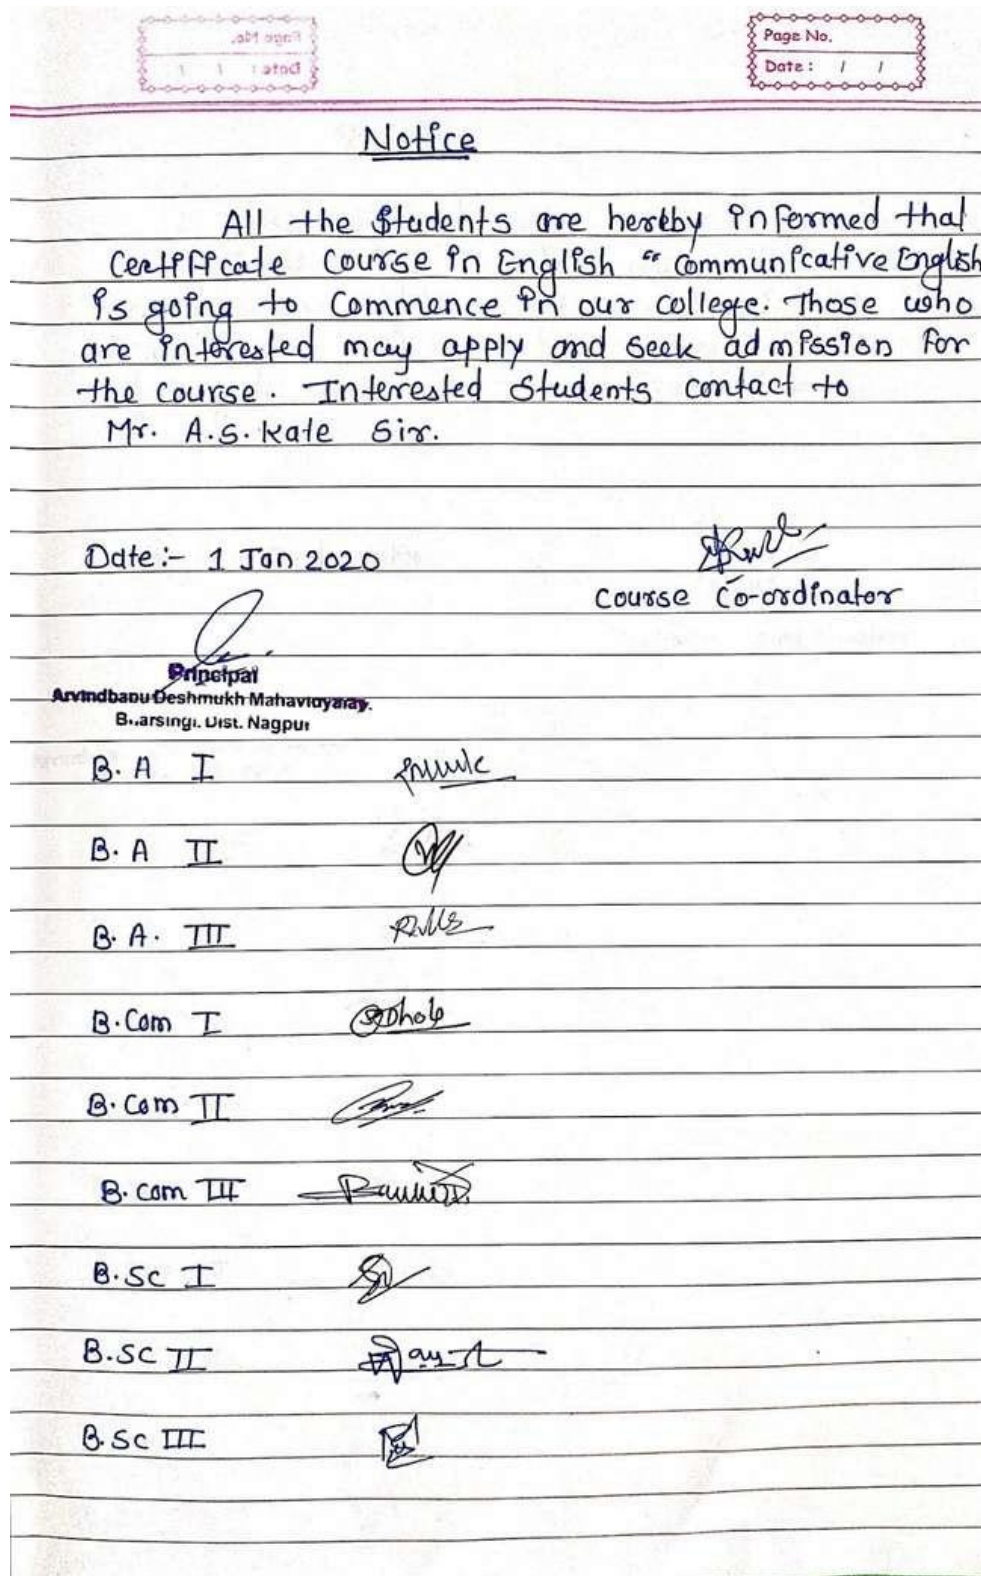 Page No.
Date : / /
Notice
All the Students are hereby informed that
Certificate Course in English " Communicative English
is going to Commence in our college. Those who
are interested may apply and seek admission for
the course. Interested Students contact to
Mr. A.S. Kale Sir.
Date:- 1 Jan 2020
Course Co-ordinator
Principal
Arvindbabu Deshmukh Mahavidyalay.
Bharsingi. Dist. Nagpur
B. A I
B. A II
B. A. III
B.Com I
Dhole
B.Com II
B.com III
B.SC I
B.SC II
B.SC III